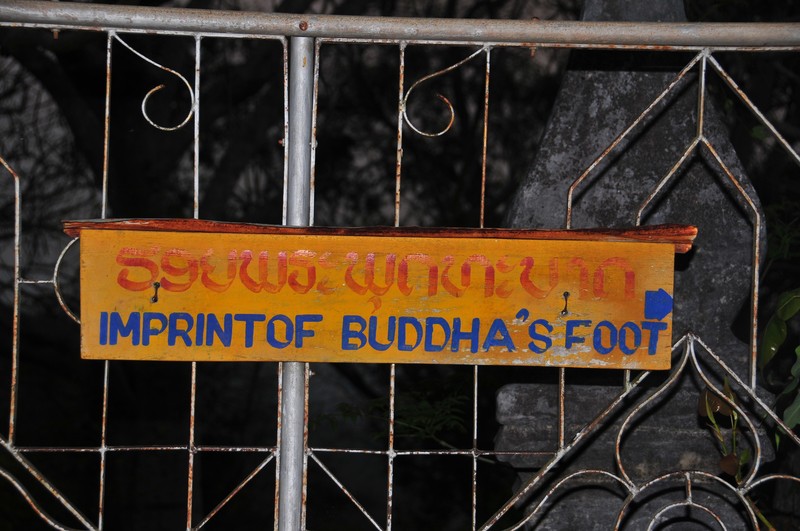 ຮອຍພຣະພຸດທະບາດ
IMPRINT OF BUDDHA'S FOOT